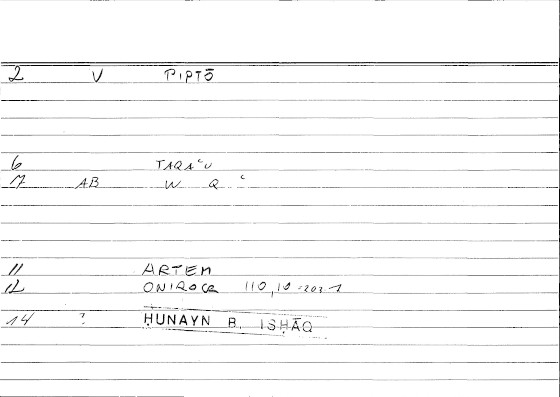 2 V PIPTŌ
6 TAQAʿU
7 AB W Q ʿ
11 ARTEM
12 ONIROCR 110,10
14 ? ḤUNAYN B. ISḤĀQ